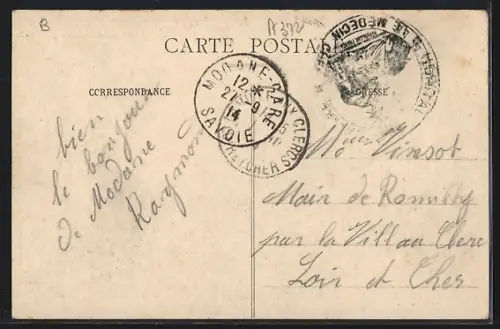 B
A 372
CARTE POSTALE
CORRESPONDANCE
ADRESSE
MODANE-GARE
12 *
9
14
SAVOIE
CLERCS
ET CHER
HÔPITAL
LE MÉDECIN CHEF
bien
le bonjour
de Modane
Raymond
Vinsot
Mair de Romilly
par la Ville au Clerc
Loir et Cher